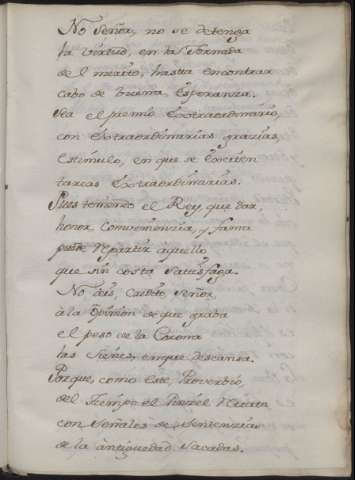 No Señor, no se detenga
la virtud, en la Jornada
del merito, hasta encontrar
cabo de buena Esperanza.
Sea el premio Extraordinario,
con Extraordinarias grazias
Estimulo, en que se Exciten
tareas Extraordinarias.
Pues teniendo el Rey, que dar,
honor, combeniencia, y fama
puede Repartir aquello
que sin costa satisfaga.
No dàis, Señor,
à la Opinion de que graba
el peso de la Corona
las Sienes, en que descansa.
Porque, como Este Proverbio,
del Tiempo el Pinzel Retrata
con Señales de Sentenzias
de la àntiguedad Sacadas.